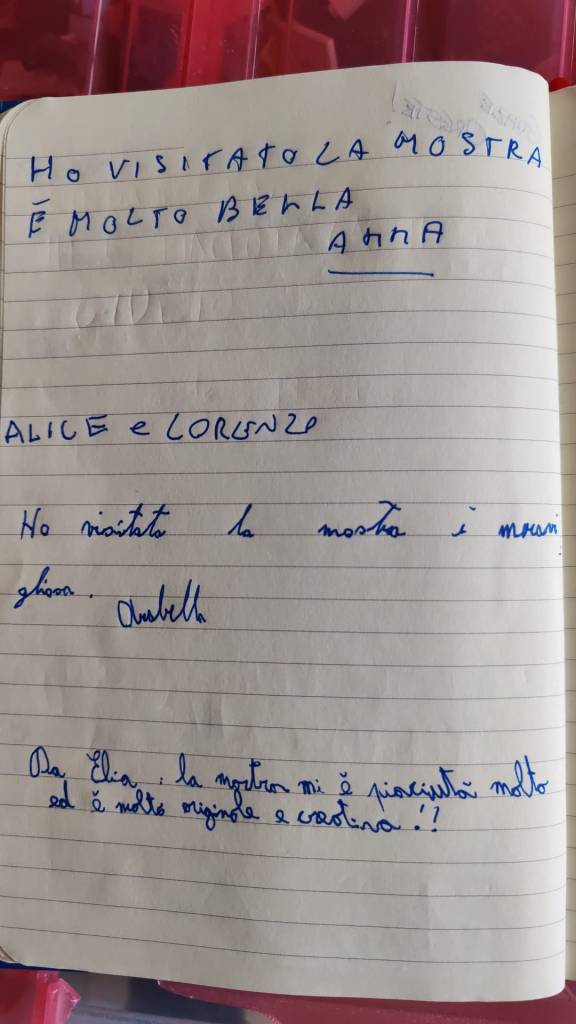 HO VISITATO LA MOSTRA
È MOLTO BELLA
ANNA
ALICE e LORENZO
Ho visitato la mostra è meravi
gliosa.
Da Elia. la mostra mi è piaciuta molto
ed è molto originale e creativa!!